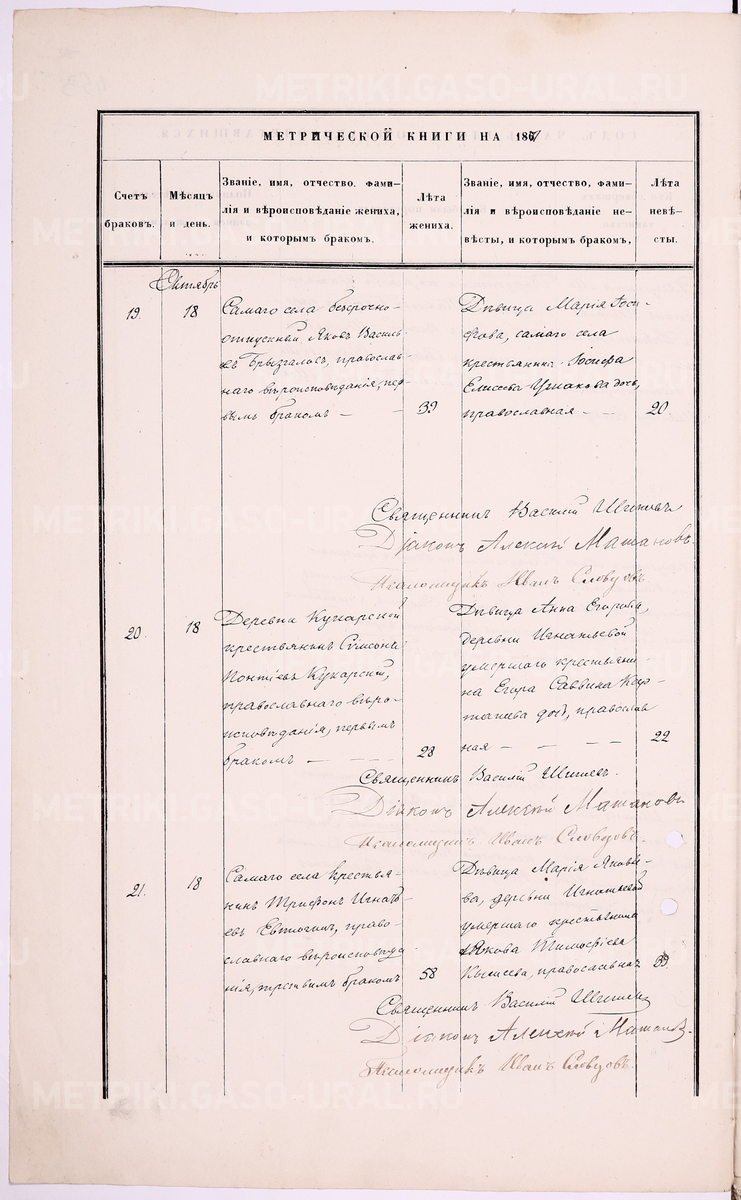 МЕТРИЧЕСКОЙ КНИГИ НА 1867
Счетъ браковъ.
Мѣсяцъ и день.
Званіе, имя, отчество, фами-
лія и вѣроисповѣданіе жениха,
и которымъ бракомъ.
Лѣта жениха.
Званіе, имя, отчество, фами-
лія и вѣроисповѣданіе не-
вѣсты, и которымъ бракомъ,
Лѣта невѣ-
сты.
Октябрь
19.
18
Самаго села безсрочно-
отпускный Яковъ Василь-
евъ Брызгаловъ, православ-
наго вѣроисповѣданія, пер-
вымъ бракомъ —
39
Дѣвица Марія Іоси-
фова, самаго села
крестьянина Іосифа
Елисеева дочь,
православная
20.
Священникъ Василій
Діаконъ Алексій
Псаломщикъ Иванъ Словцовъ
20.
18
Деревни Кукарской
крестьянинъ Сумеонъ
Понтіевъ Кукарскій,
православнаго вѣро-
исповѣданія, первымъ
бракомъ —
28
Дѣвица Анна Егорова,
деревни Игнатьевой
умершаго крестьяни-
на Егора Саввина
дочь, православ
ная —
22
Священникъ Василій
Діаконъ Алексій
Псаломщикъ Иванъ Словцовъ.
21.
18
Самаго села крестья-
нинъ Трифонъ Игнать-
евъ право-
славнаго вѣроисповѣда
нія, третьимъ бракомъ
58
Дѣвица Марія Яковле-
ва, деревни Игнатьевой
умершаго крестьянина
Якова Тимофѣева
православная
Священникъ Василій
Діаконъ Алексій
Псаломщикъ Иванъ Словцовъ.
METRIKI.GASO-URAL.RU